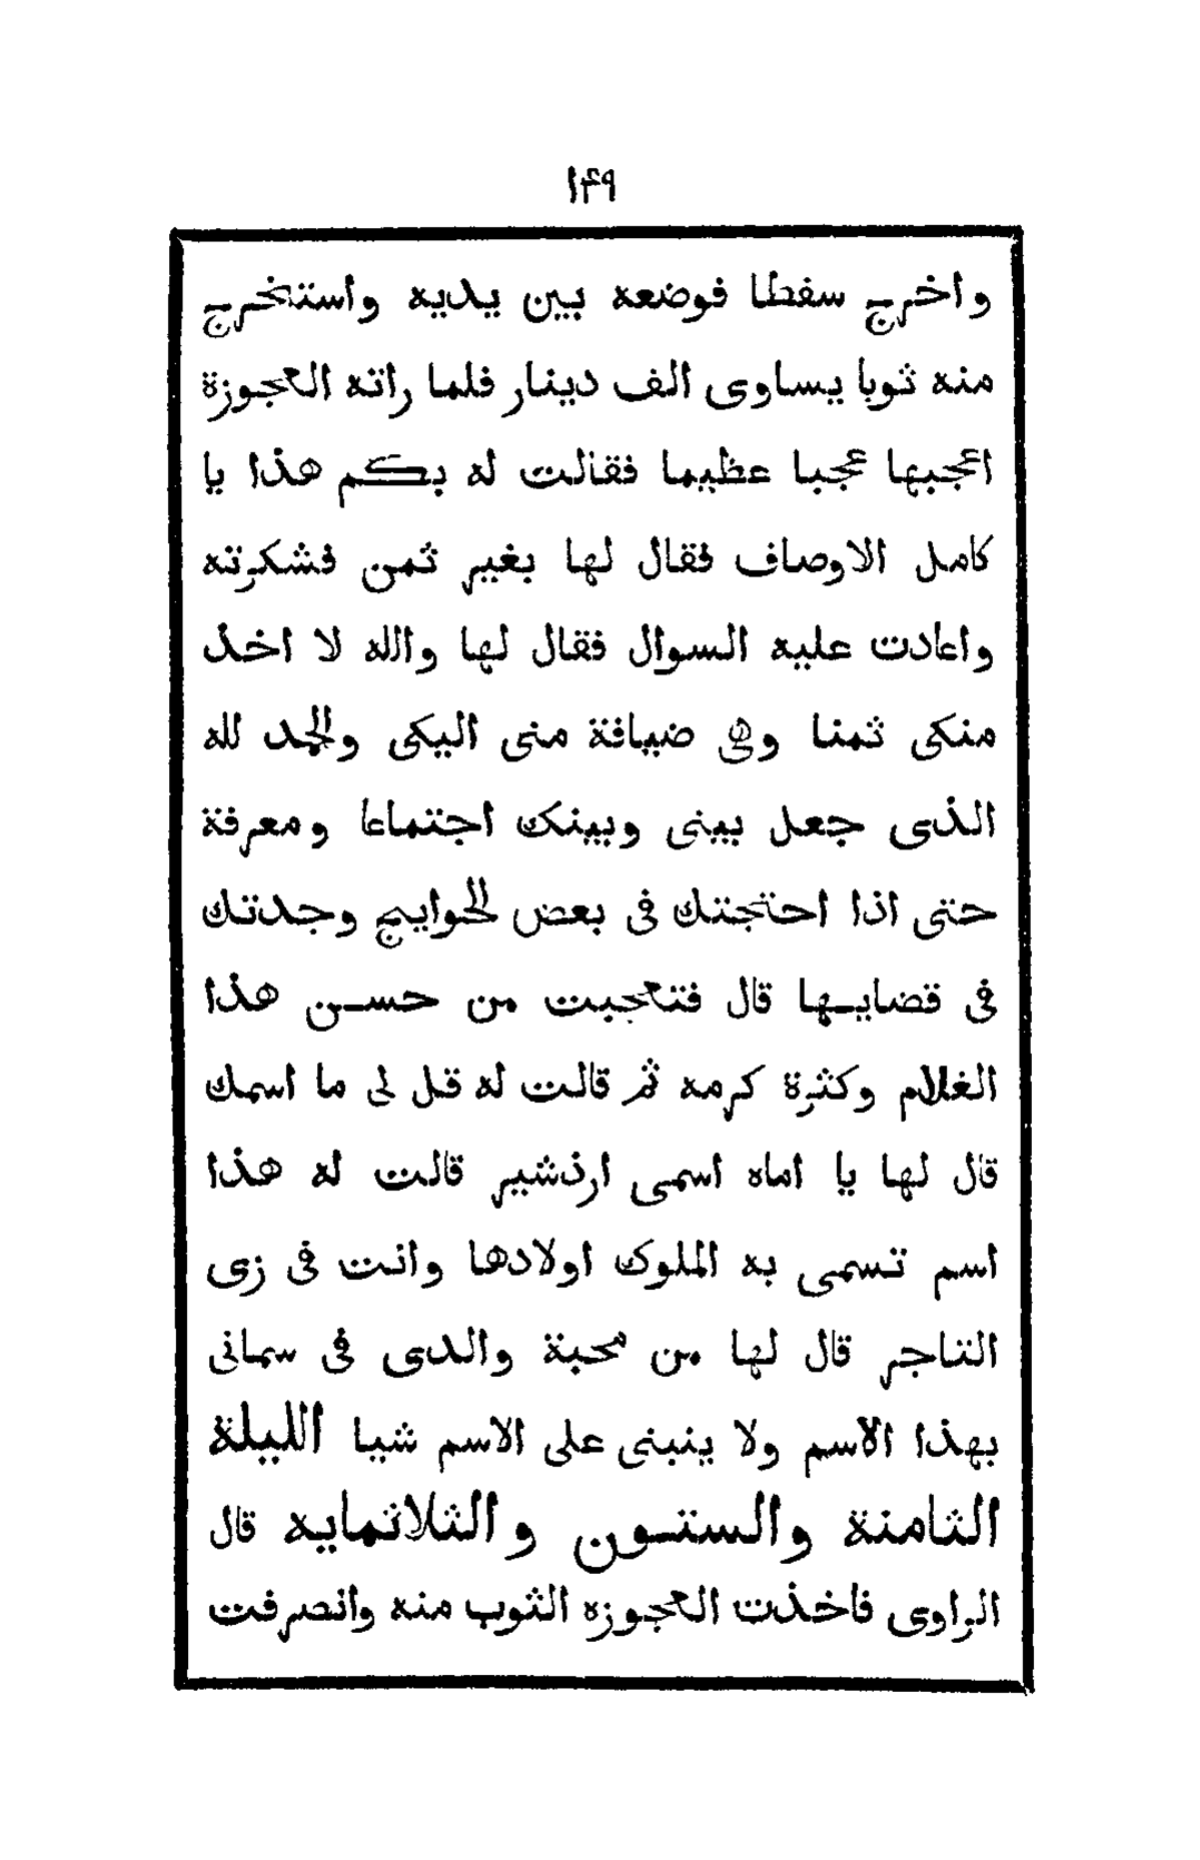 ١٤٩
واخرج سفطا فوضعه بين يديه واستخرج
منه ثوبا يساوى الف دينار فلما راته العجوزة
اعجبها عجبا عظيما فقالت له بكم هذا يا
كامل الاوصاف فقال لها بغير ثمن فشكرته
واعادت عليه السوال فقال لها والله لا اخذ
منكى ثمنا وهى ضيافة منى اليكى والحمد لله
الذى جعل بينى وبينك اجتماعا ومعرفة
حتى اذا احتجتك فى بعض الحوايج وجدتك
فى قضايها قال فتعجبت من حسن هذا
الغلام وكثرة كرمه ثم قالت له قل لى ما اسمك
قال لها يا اماه اسمى ارذشير قالت له هذا
اسم تسمى به الملوك اولادها وانت فى زى
التاجر قال لها من محبة والدى فى سمانى
بهذا الاسم ولا ينبنى على الاسم شيا الليلة
الثامنة والستون والثلاثمايه قال
الراوى فاخذت العجوزه الثوب منه وانصرفت